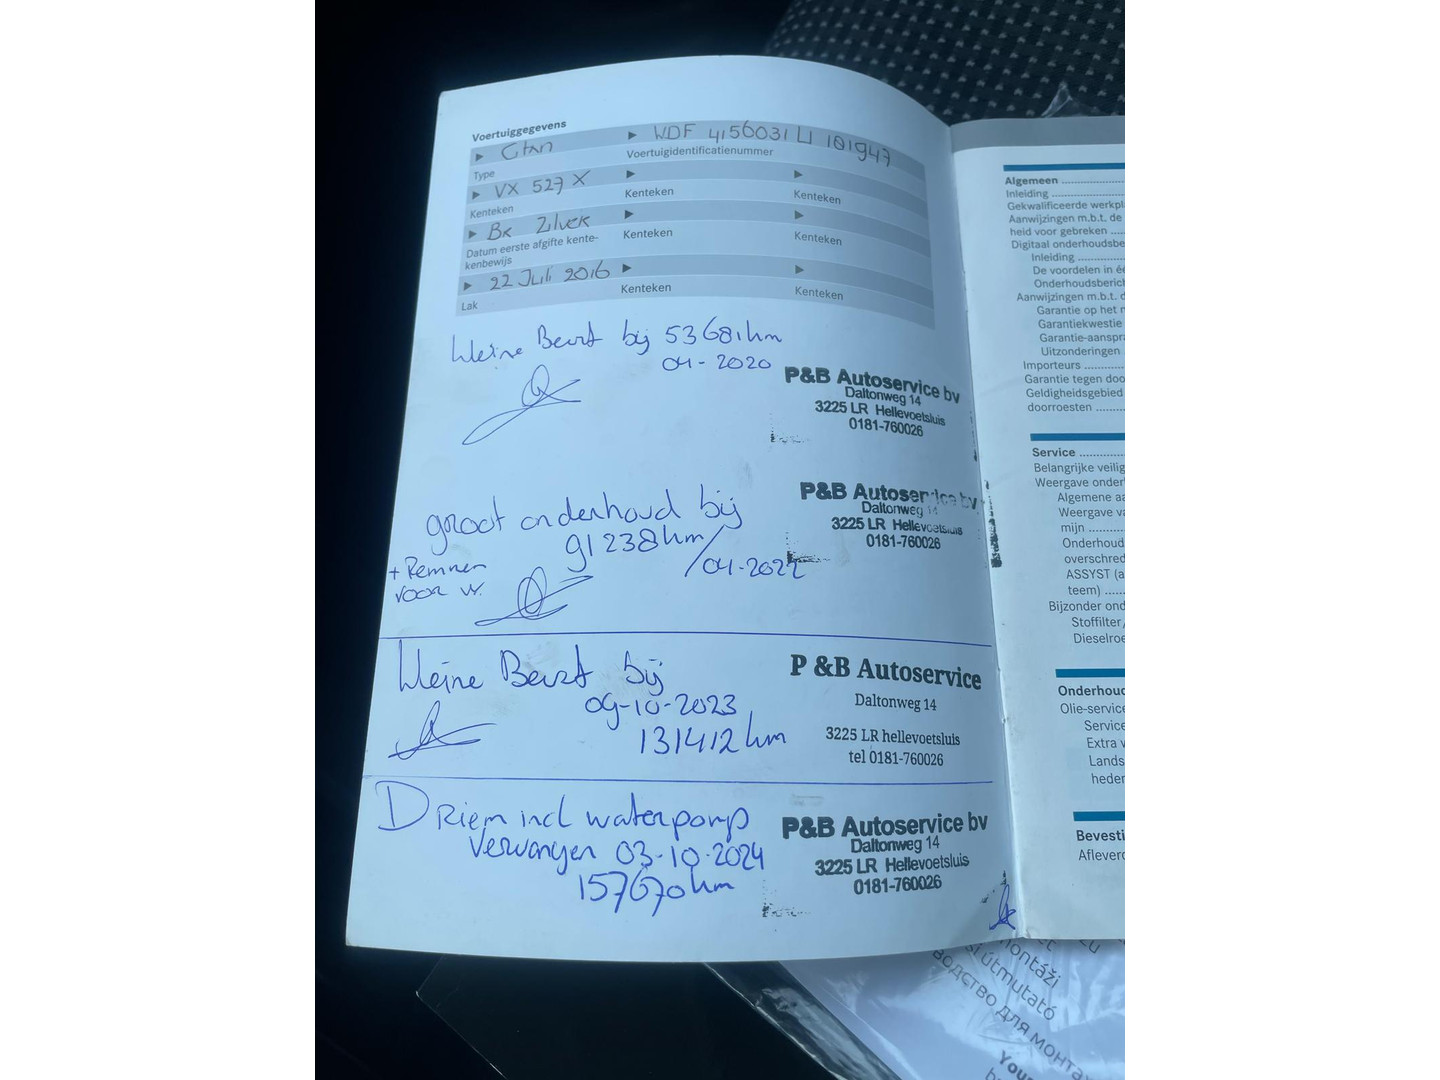 Voertuiggegevens
▶ Citan
▶ WDF 4156031 U 181947
Type
Voertuigidentificatienummer
▶ VX 527 X
▶
▶
Kenteken
Kenteken
Kenteken
▶ Br Zilver
▶
▶
Datum eerste afgifte kente-
kenbewijs
Kenteken
Kenteken
▶ 22 Juli 2016
▶
▶
Lak
Kenteken
Kenteken
kleine Beurt bij 53681 km
04-2020
P&B Autoservice bv
Daltonweg 14
3225 LR Hellevoetsluis
0181-760026
groot onderhoud bij
91238 km
/04-2022
+ Remmen
voor v.
P&B Autoservice bv
Daltonweg 14
3225 LR Hellevoetsluis
0181-760026
kleine Beurt bij
09-10-2023
131412 km
P &B Autoservice
Daltonweg 14
3225 LR hellevoetsluis
tel 0181-760026
D Riem incl waterpomp
vervangen 03-10-2024
157670 km
P&B Autoservice bv
Daltonweg 14
3225 LR Hellevoetsluis
0181-760026
Algemeen
Inleiding
Gekwalificeerde werkpl
Aanwijzingen m.b.t. de
heid voor gebreken
Digitaal onderhoudsbe
Inleiding
De voordelen in é
Onderhoudsberich
Aanwijzingen m.b.t. d
Garantie op het n
Garantiekwestie
Garantie-aanspra
Uitzonderingen
Importeurs
Garantie tegen doo
Geldigheidsgebied
doorroesten
Service
Belangrijke veilig
Weergave onder
Algemene aa
Weergave va
mijn
Onderhoud
overschred
ASSYST (a
teem)
Bijzonder ond
Stoffilter/
Dieselroe
Onderhoud
Olie-service
Service
Extra v
Lands
heden
Bevesti
Aflever
montáži
útmutató
водство для монта
You